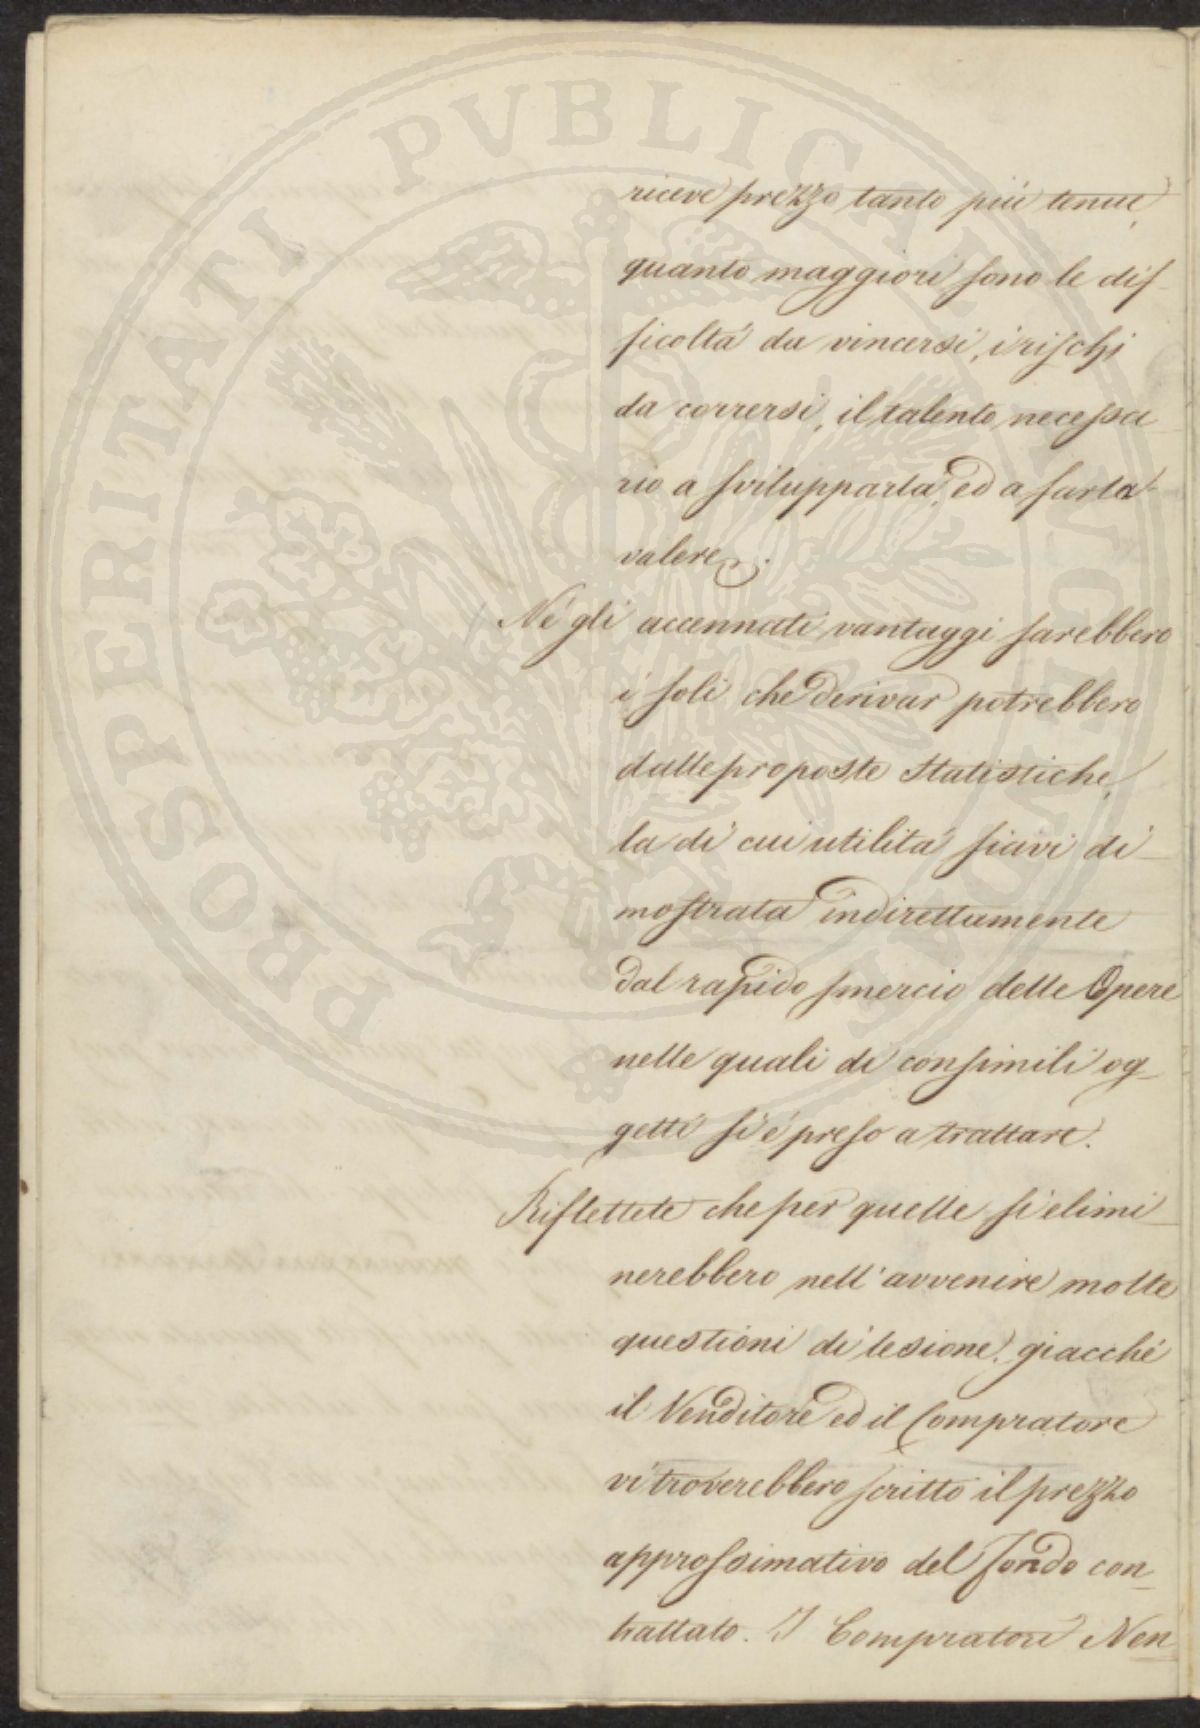 PROSPERITATI PVBLICAE AVGENDAE
riceve prezzo tanto più tenue,
quanto maggiori sono le dif-
ficoltà da vincersi, i rischj
da corrersi, il talento necessa-
rio a svilupparla, ed a farla
valere.
Nè gli accennati vantaggi sarebbero
i soli che derivar potrebbero
dalle proposte Statistiche,
la di cui utilità siavi di-
mostrata indirettamente
dal rapido smercio delle Opere
nelle quali di consimili og-
getti si è preso a trattare.
Riflettete che per quelle si elimi-
nerebbero nell'avvenire molte
questioni di lesione, giacchè
il Venditore ed il Compratore
vi troverebbero scritto il prezzo
approssimativo del fondo con-
trattato. I Compratori Ven